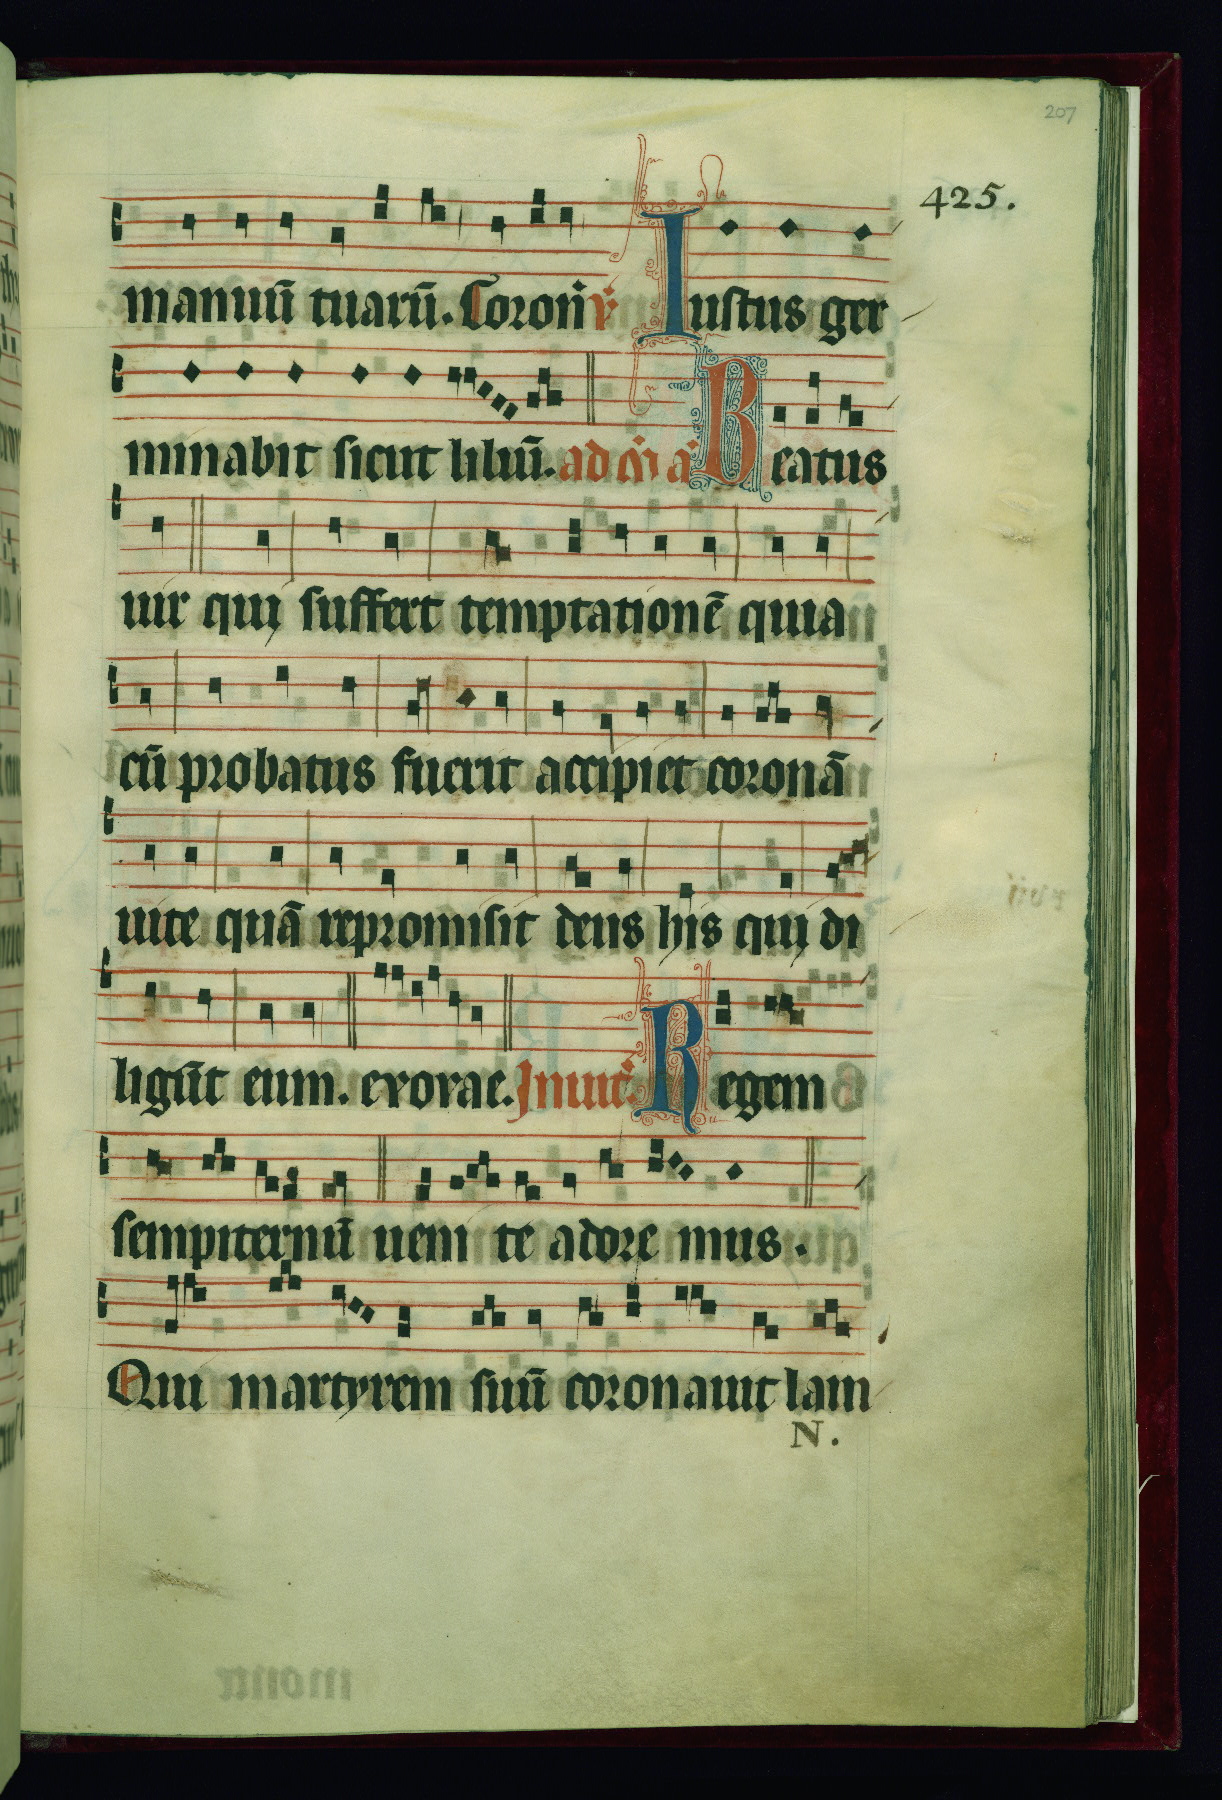 207
425.
manuū tuarū. Coron̄ v̇ Iustus ger
minabit sicut liliū. ad m̄ a Beatus
uir qui suffert temptationē quia
cū probatus fuerit accipiet coronā
uite quā repromisit deus his qui di
ligūt eum. evovae. Inuit. Regem
sempiternū ueni te adore mus.
Qui martyrem suū coronauit lam
N.